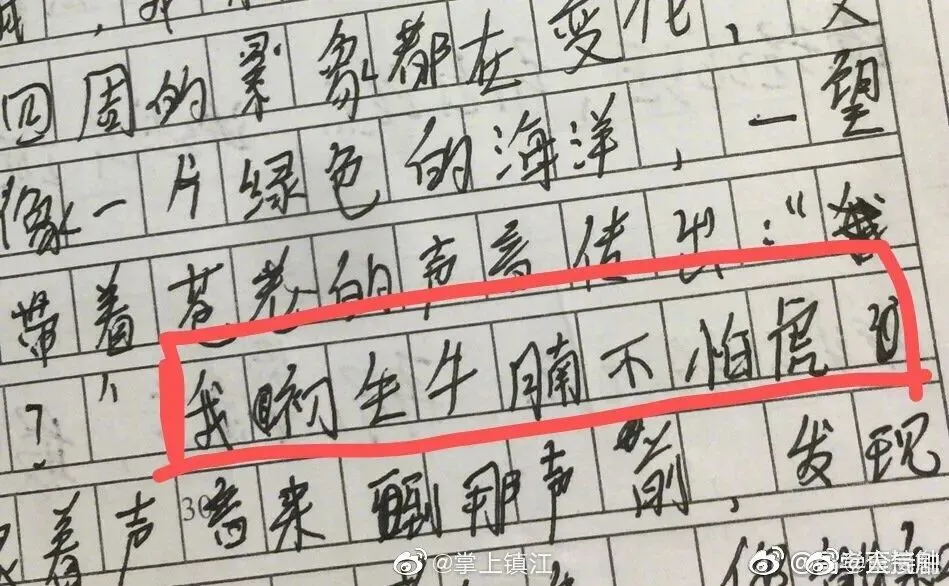 四周的景象都在变化，又
像一片绿色的海洋，一望
带着苍老的声音传出：“我
了”，我初生牛腩不怕虎的
着声音来到那声前，发现
30
@掌上镇江